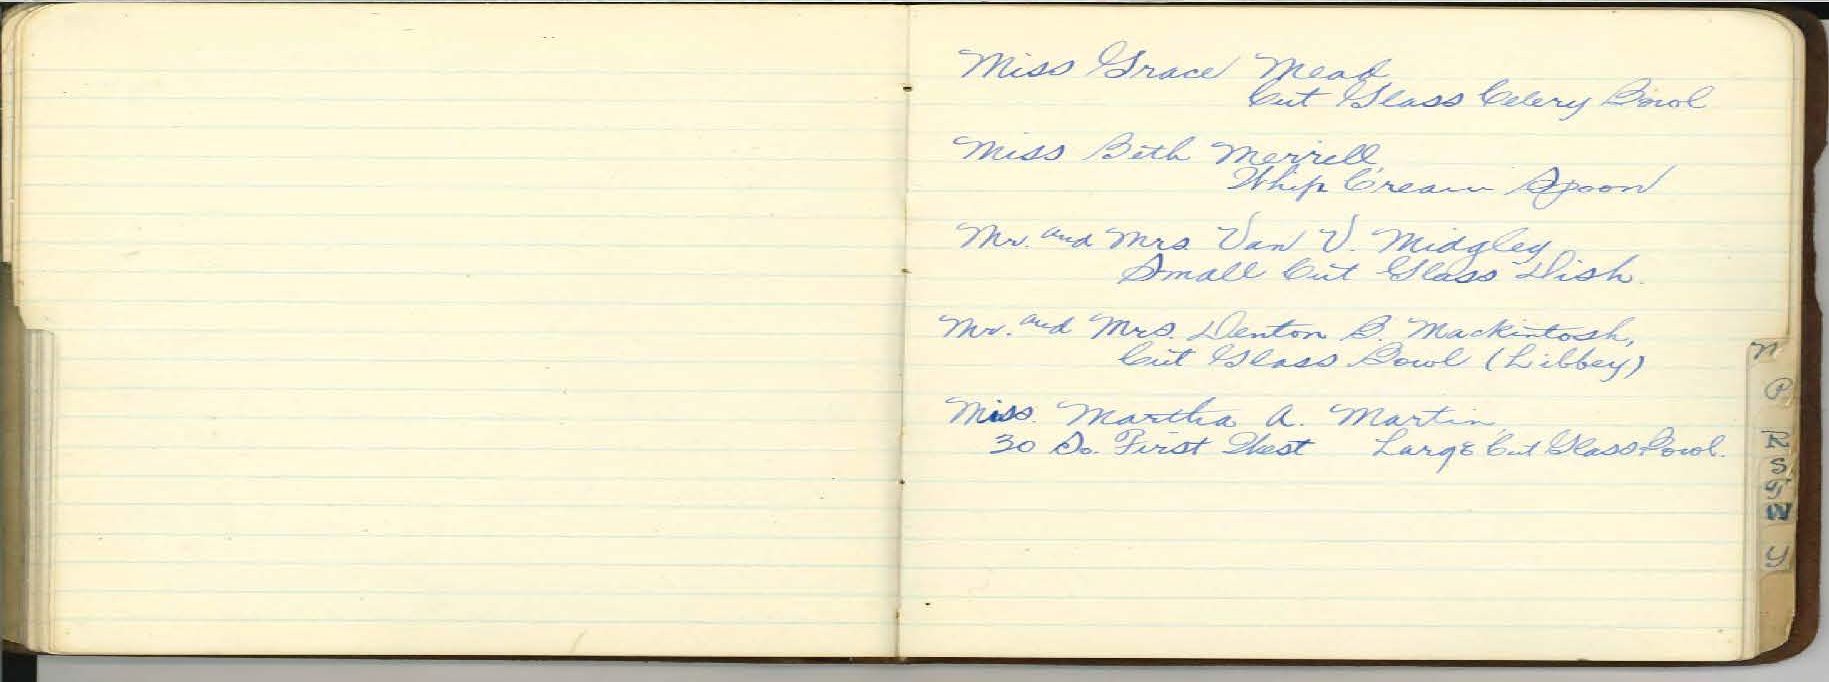 Miss Grace Mead
Cut Glass Celery Bowl
Miss Beth Merrell
Whip Cream Spoon
Mr. and Mrs. Van V. Midgley
Small Cut Glass Dish.
Mr. and Mrs. Denton B. Mackintosh,
Cut Glass Bowl (Libbey)
Miss. Martha A. Martin,
30 So. First West Large Cut Glass Bowl.
N
P
R
S
T
W
Y